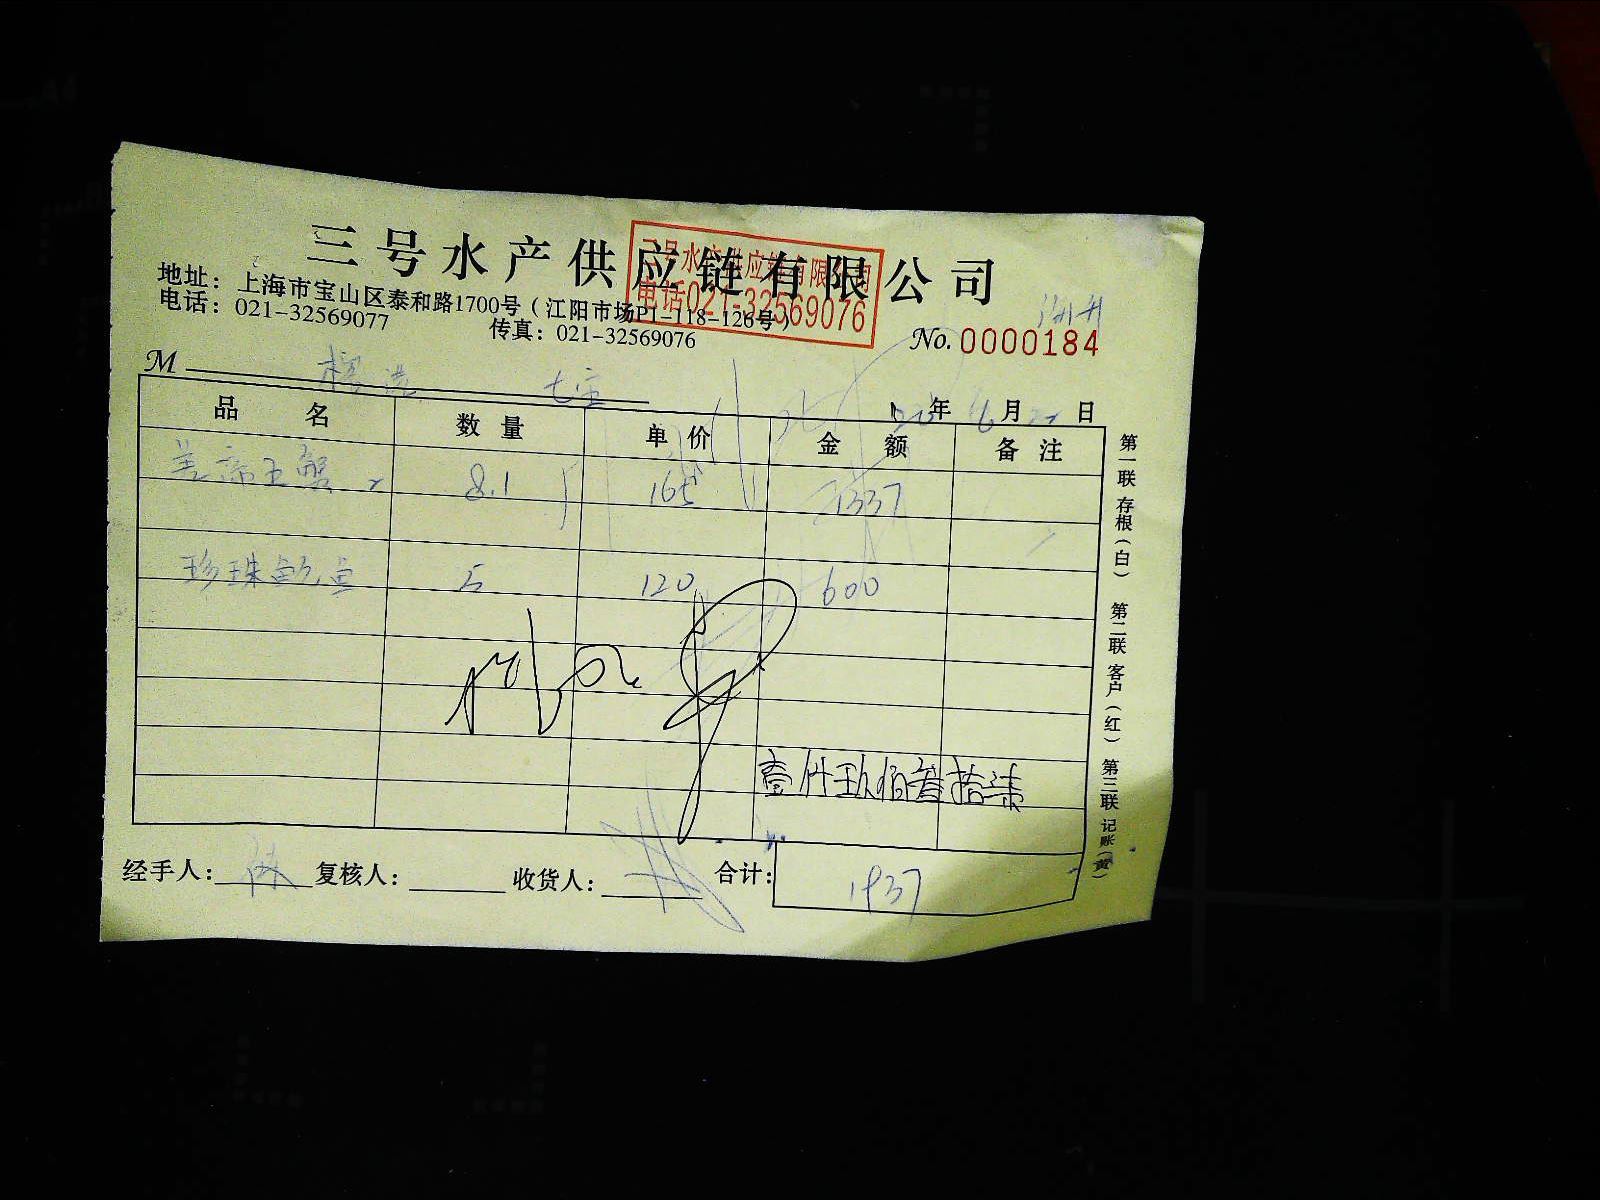 三号水产供应链有限公司
三号水产供应链有限公司
电话021-32569076
地址：上海市宝山区泰和路1700号（江阳市场P1-118-126号）
电话：021-32569077 传真：021-32569076
No.0000184
M
年 6月 日
品名 数量 单价 金额 备注
帝王蟹 8.1 165 1337
珍珠鲍鱼 5 120 600
壹仟玖佰叁拾柒
经手人： 复核人： 收货人： 合计： 1937
第一联 存根（白） 第二联 客户（红） 第三联 记账（黄）